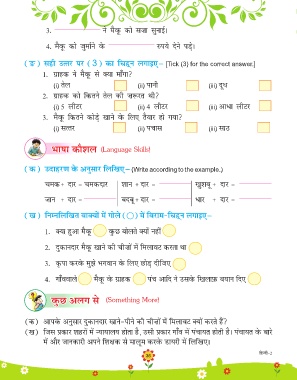 3. ने मैकू को सजा सुनाई।
4. मैकू को जुर्माने के रुपये देने पड़े।
( ङ ) सही उत्तर पर ( 3 ) का चिह्न लगाइए– [Tick (3) for the correct answer.]
1. ग्राहक ने मैकू से क्या माँगा?
(i) तेल (ii) पानी (iii) दूध
2. ग्राहक को कितने तेल की ज़रूरत थी?
(i) 5 लीटर (ii) 4 लीटर (iii) आधा लीटर
3. मैकू कितने कोड़े खाने के लिए तैयार हो गया?
(i) सत्तर (ii) पचास (iii) साठ
भाषा कौशल (Language Skills)
( क ) उदाहरण के अनुसार लिखिए– (Write according to the example.)
चमक + दार – चमकदार शान + दार – खुशबू + दार –
जान + दार – बदबू + दार – धार + दार –
( ख ) निम्नलिखित वाक्यों में गोले ( ) में विराम-चिह्न लगाइए–
1. क्या हुआ मैकू कुछ बोलते क्यों नहीं
2. दुकानदार मैकू खाने की चीजों में मिलावट करता था
3. कृपा करके मुझे भगवान के लिए छोड़ दीजिए
4. गाँववाले मैकू के ग्राहक पंच आदि ने उसके खिलाफ़ बयान दिए
कुछ अलग से (Something More)
( क ) आपके अनुसार दुकानदार खाने-पीने की चीजों में मिलावट क्यों करते हैं?
( ख ) जिस प्रकार शहरों में न्यायालय होता है, उसी प्रकार गाँव में पंचायत होती है। पंचायत के बारे
में और जानकारी अपने शिक्षक से मालूम करके डायरी में लिखिए।
36
हिन्दी-2